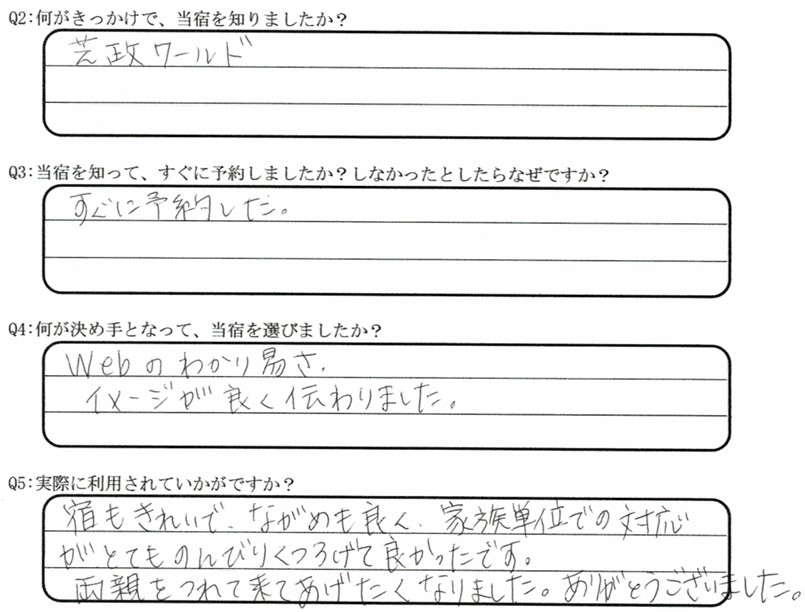 Q2:何がきっかけで、当宿を知りましたか？
芝政ワールド
Q3:当宿を知って、すぐに予約しましたか？しなかったとしたらなぜですか？
すぐに予約した。
Q4:何が決め手となって、当宿を選びましたか？
Webのわかり易さ.
イメージが良く伝わりました。
Q5:実際に利用されていかがですか？
宿もきれいで、ながめも良く、家族単位での対応
がとてものんびりくつろげて良かったです。
両親をつれて来てあげたくなりました。ありがとうございました。